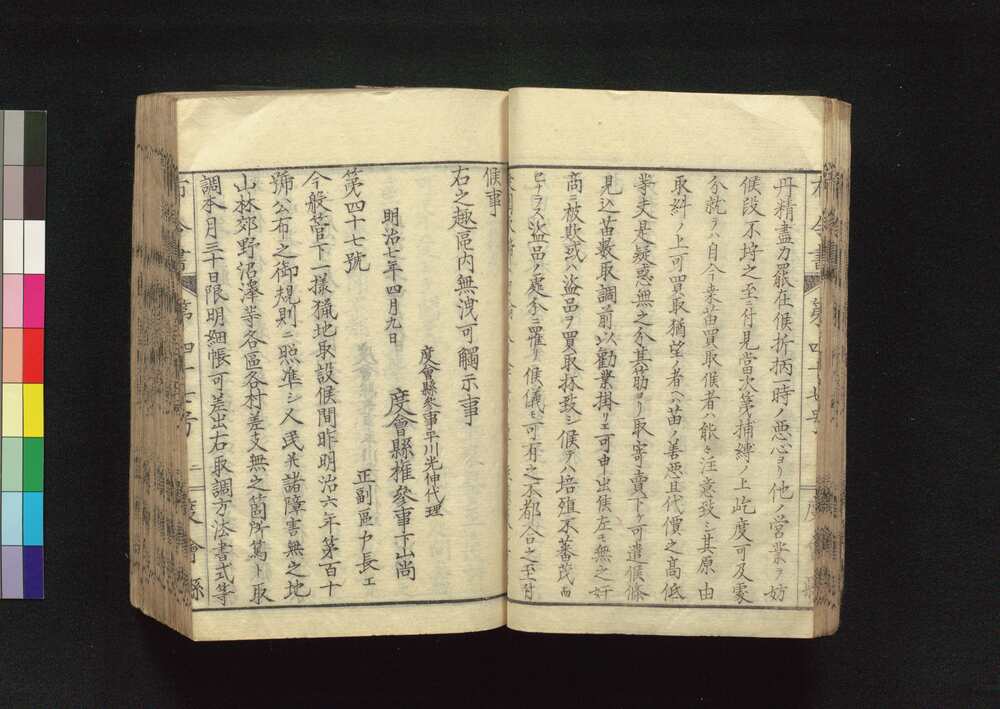 丹精盡力罷在候折柄一時ノ悪心ヨリ他ノ営業ヲ妨
候段不埒之至ニ付見當次第捕縛ノ上屹度可及
分就テハ自今桑苗買取候者ハ能々注意致シ其原由
取糾ノ上可買取猶望ノ者ヘハ苗ノ善悪其代價之高低
等夫是疑惑無之分其筋ヨリ取寄賣下ケ可遣候條
見込苗數取調前以勧業掛リエ可申出候左モ無之奸
商ニ被欺或ハ盗品ヲ買取抔致シ候テハ培殖不蕃茂而
已ナラス盗品ノ處分ニ罹リ候儀モ可有之不都合之至ニ付
候事
右之趣區内無洩可觸示事
明治七年四月九日
度會縣參事平川光伸代理
度會縣権參事下山尚
正副區戸長エ
第四十七號
今般管下一様猟地取設候間昨明治六年第百十
號公布之御規則ニ照準シ人民共諸障害無之地
山林郊野沼澤等各區各村差支無之箇所篤ト取
調本月三十日限明細帳可差出右取調方法書式等
第四十七号 二 度會縣